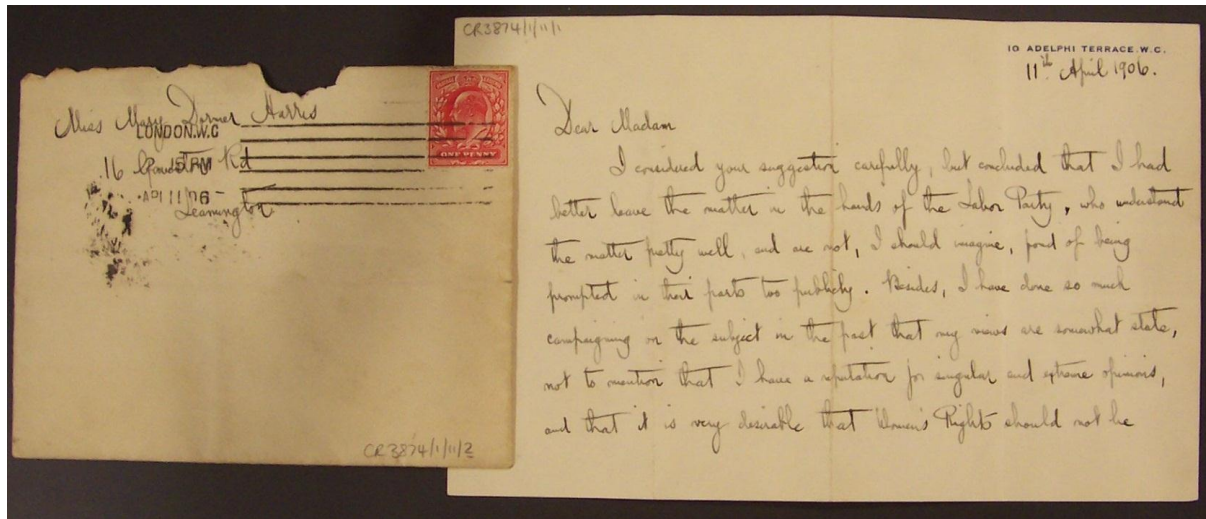 Miss Mary Dormer Harris
LONDON.W.C
16 Gaveston Rd
15 PM
AP 11 06
Leamington
ONE PENNY
CR3874/1/11/2
CR3874/1/11/1
10 ADELPHI TERRACE. W.C.
11th April 1906.
Dear Madam
I considered your suggestion carefully, but concluded that I had
better leave the matter in the hands of the Labor Party, who understand
the matter pretty well, and are not, I should imagine, fond of being
prompted in their parts too publicly. Besides, I have done so much
campaigning on the subject in the past that my views are somewhat stale,
not to mention that I have a reputation for singular and extreme opinions,
and that it is very desirable that Women's Rights should not be